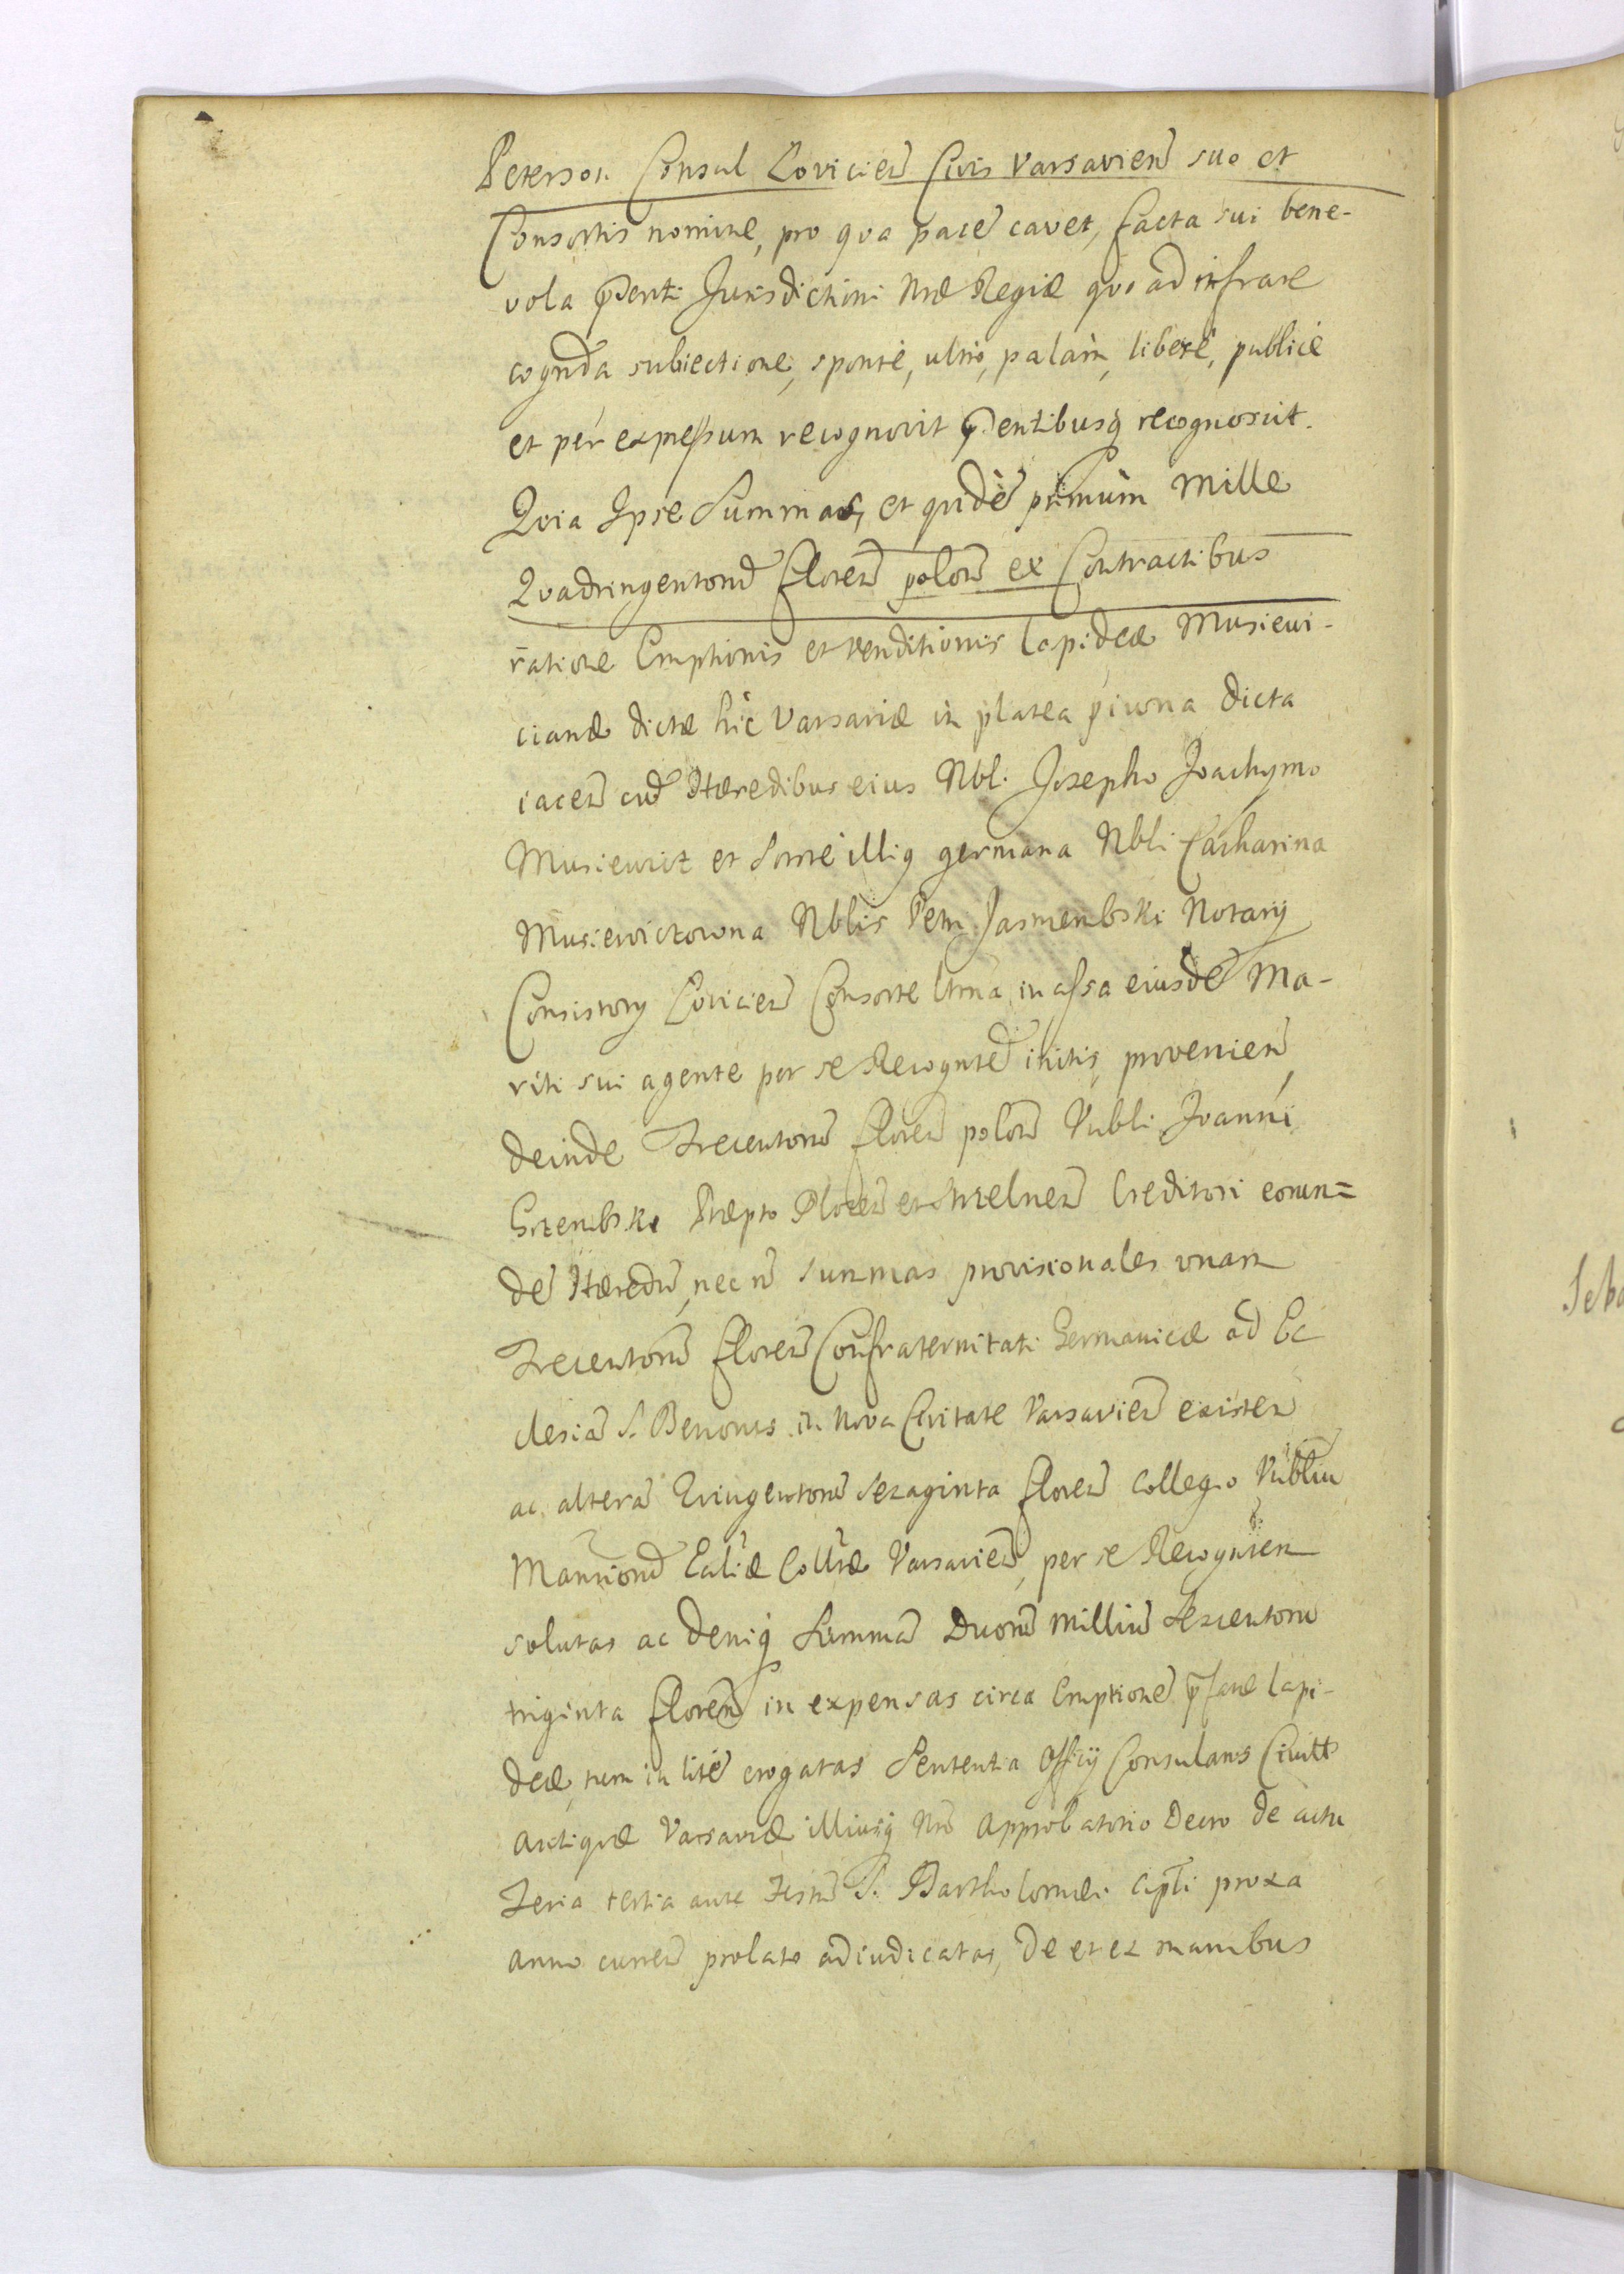 Peterson Consul Lovicien̄ Civis Varsavien̄ suo et
Consortis nomine, pro qva pace᷈ cavet, facta sui bene-
vola p̄senti Jurisdictioni Nr̄æ Regiæ qvo ad infra re
cogn̄da subiectione, sponte, ultro, palam, liberè, publicè
et per expressum recognovit p̄sentibusq̨ recognoscit.
Qvia Ipse Summas, et qvide᷈ primùm Mille
Qvadringentoru᷈ floren̄ polon̄ ex Contractibus
ratione Emptionis et venditionis lapideæ Musiewi-
cianæ dictæ hic Varsaviæ in platea piwna dicta
iacen̄ cu᷈ Hæredibus eius Nbl. Josepho Joachymo
Musiewicz et Sorore illiq̨ germana Nbli Catharina
Musiewiczowna Nblis Petri Jasmenbski Notarij
Consistorij Lovicien̄ Consorte ltma in assa eiusde᷈ Ma-
riti sui agente per se Recognte᷈ initis, provenien̄
deinde Trecentoru᷈ floren̄ polon̄ Vnbli Joanni
Grzembski Præpto Plocen̄ et Strzelnen̄ Creditori eorun=
de᷈ Hæredu᷈, nec n̄ summas provisionales unam
Trecentoru᷈ floren̄ Confraternitati Germanicæ ad Ec
clesia᷈ S. Bennonis in Nova Civitate Varsavien̄ existen̄
ac altera᷈ Qvingentoru᷈ Sexaginta floren̄ Collegio Vnbliu᷈
Mansionar̄ Ecaliæ Collr̄æ Varsavien̄, per se Recognten
solutas ac deniq̨ Summa᷈ Duoru᷈ Milliu᷈ Sexcentoru᷈
triginta floren̄ in expensas circa Emptione᷈ p̄fatæ lapi-
deæ, tum in lite᷈ erogatas Sententia Officij Consularis Civitt
Antiqvæ Varsaviæ illiusq̨ Nr̄o Approbatorio Decro de actu
Feria tertia ante Festu᷈ S. Bartholomæi Apli proxa
Anno curren̄ prolato adiudicatas, de et ex manibus
Seba